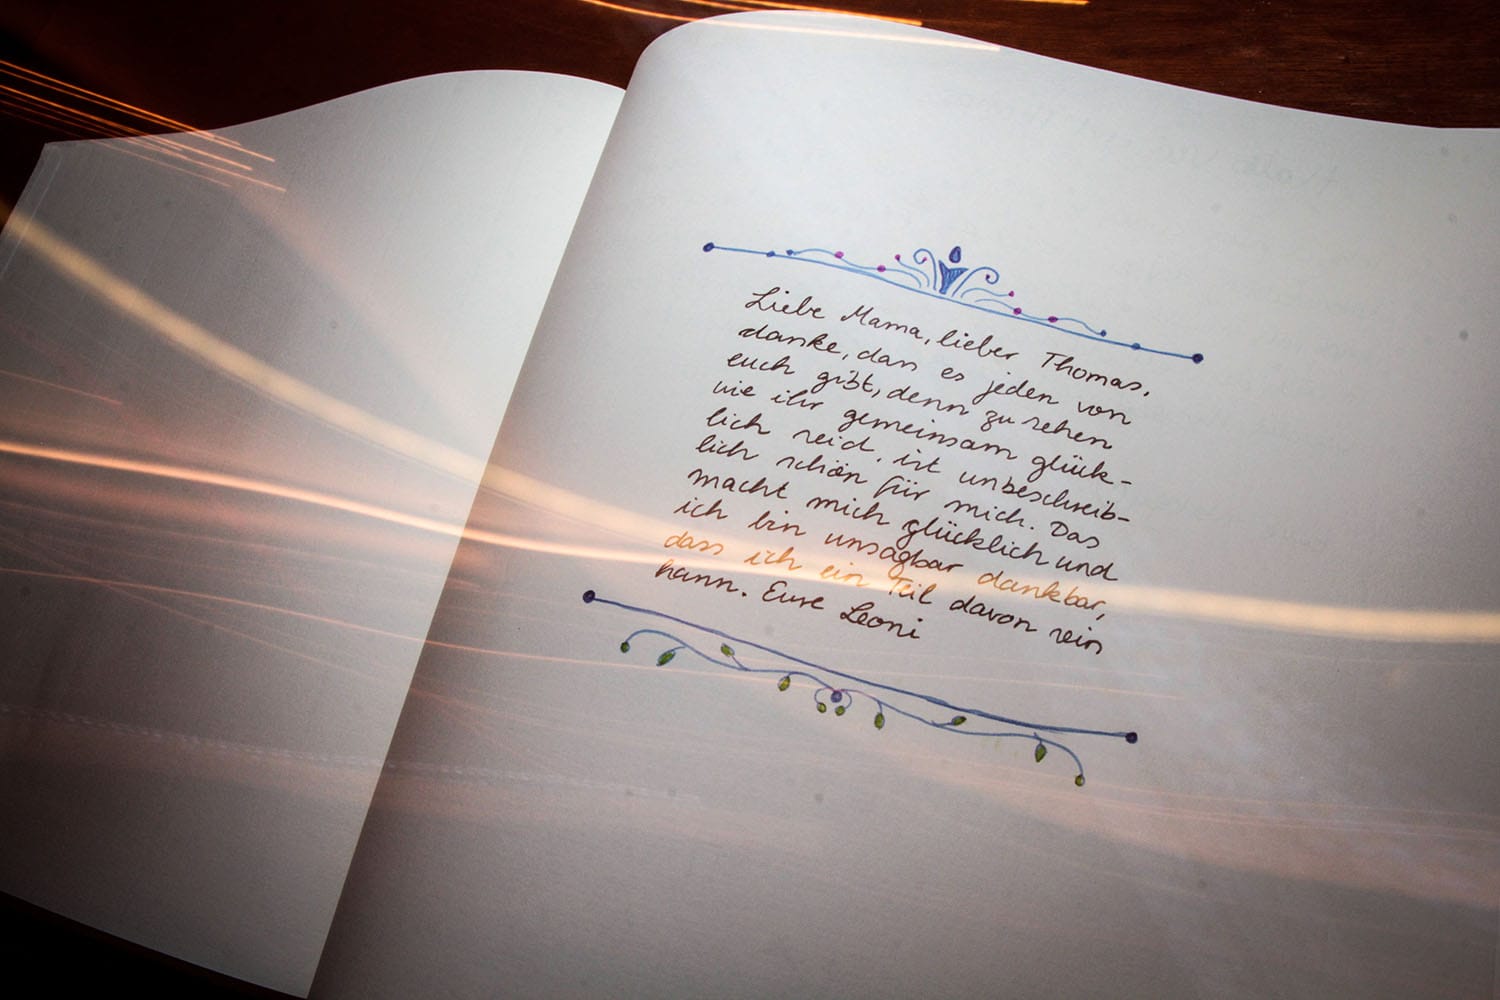 Liebe Mama, lieber Thomas,
danke, dass es jeden von
euch gibt, denn zu sehen
wie ihr gemeinsam glück-
lich seid, ist unbeschreib-
lich schön für mich. Das
macht mich glücklich und
ich bin unsagbar dankbar,
dass ich ein Teil davon sein
kann. Eure Leoni